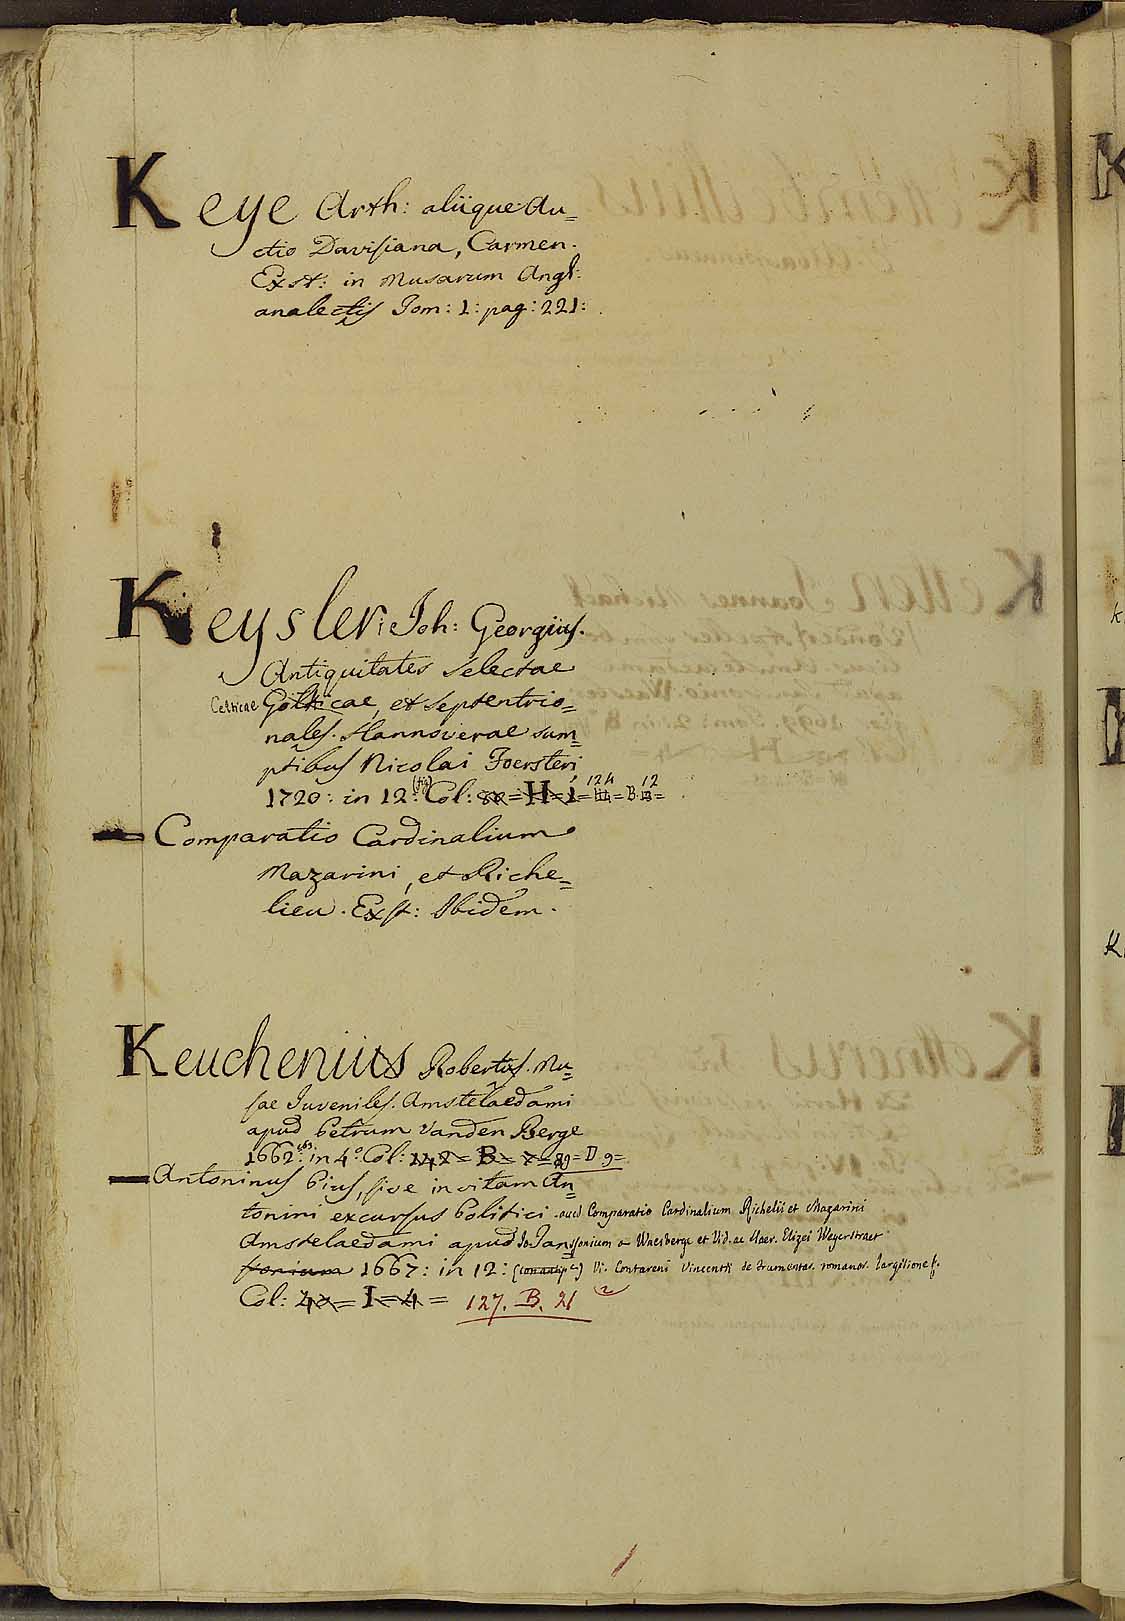 Keye Arth: aliique Au=
ctio Davisiana, Carmen.
Exst: in Musarum Angl:
analectis Tom: 1: pag: 221:
Keysler: Joh: Georgius.
Antiquitates Selectae
Celticae, et Septentrio=
nales. Hannoverae sum=
ptibus Nicolai Foersteri
1720: in 12: (fig) Col: H=1= 124 = B. 12 =
Comparatio Cardinalium
Mazarini, et Riche=
lieu. Exst: Ibidem.
Keuchenius Robertus. Mu=
sae Juveniles. Amstelaedami
apud Petrum Vanden Berge
1662: in 4.º Col: 142= B= 7= 89= D. 9=
Antoninus Pius, sive in vitam An=
tonini excursus Politici. Comparatio Cardinalium Richelii et Mazarini
Amstelaedami apud Jo: Janssonium a Waesberge et Vid. ac Haer. Elizei Weyerstraet
ssonium 1667: in 12: Vi. Contareni Vincentii de frumentar. romanor. largitione
Col: 42= I= 4= 127. B. 21